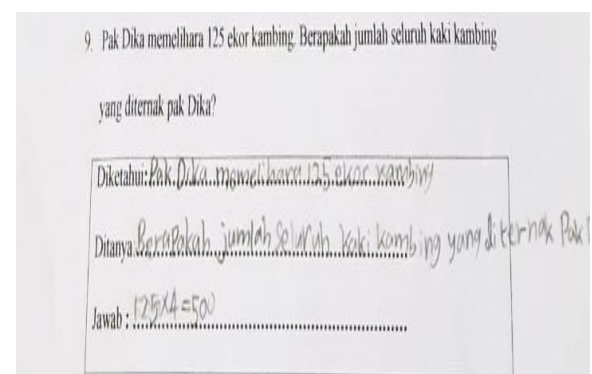 9. Pak Dika memelihara 125 ekor kambing. Berapakah jumlah seluruh kaki kambing
yang diternak pak Dika?
Diketahui: Pak Dika memelihara 125 ekor kambing
Ditanya: Berapakah jumlah seluruh kaki kambing yang diternak Pak
Jawab : 125x4=500